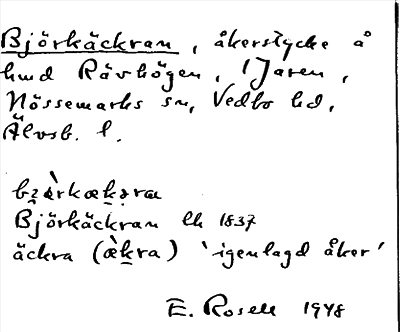 Björkäckran, åkerstycke å
hmd Rävhögen, 1 Jaren,
Nössemarks sn, Vedbo hd,
Älvsb. l.
Björkäckran lh 1837
äckra (æ̀kra) 'igenlagd åker'
E. Rosell 1948